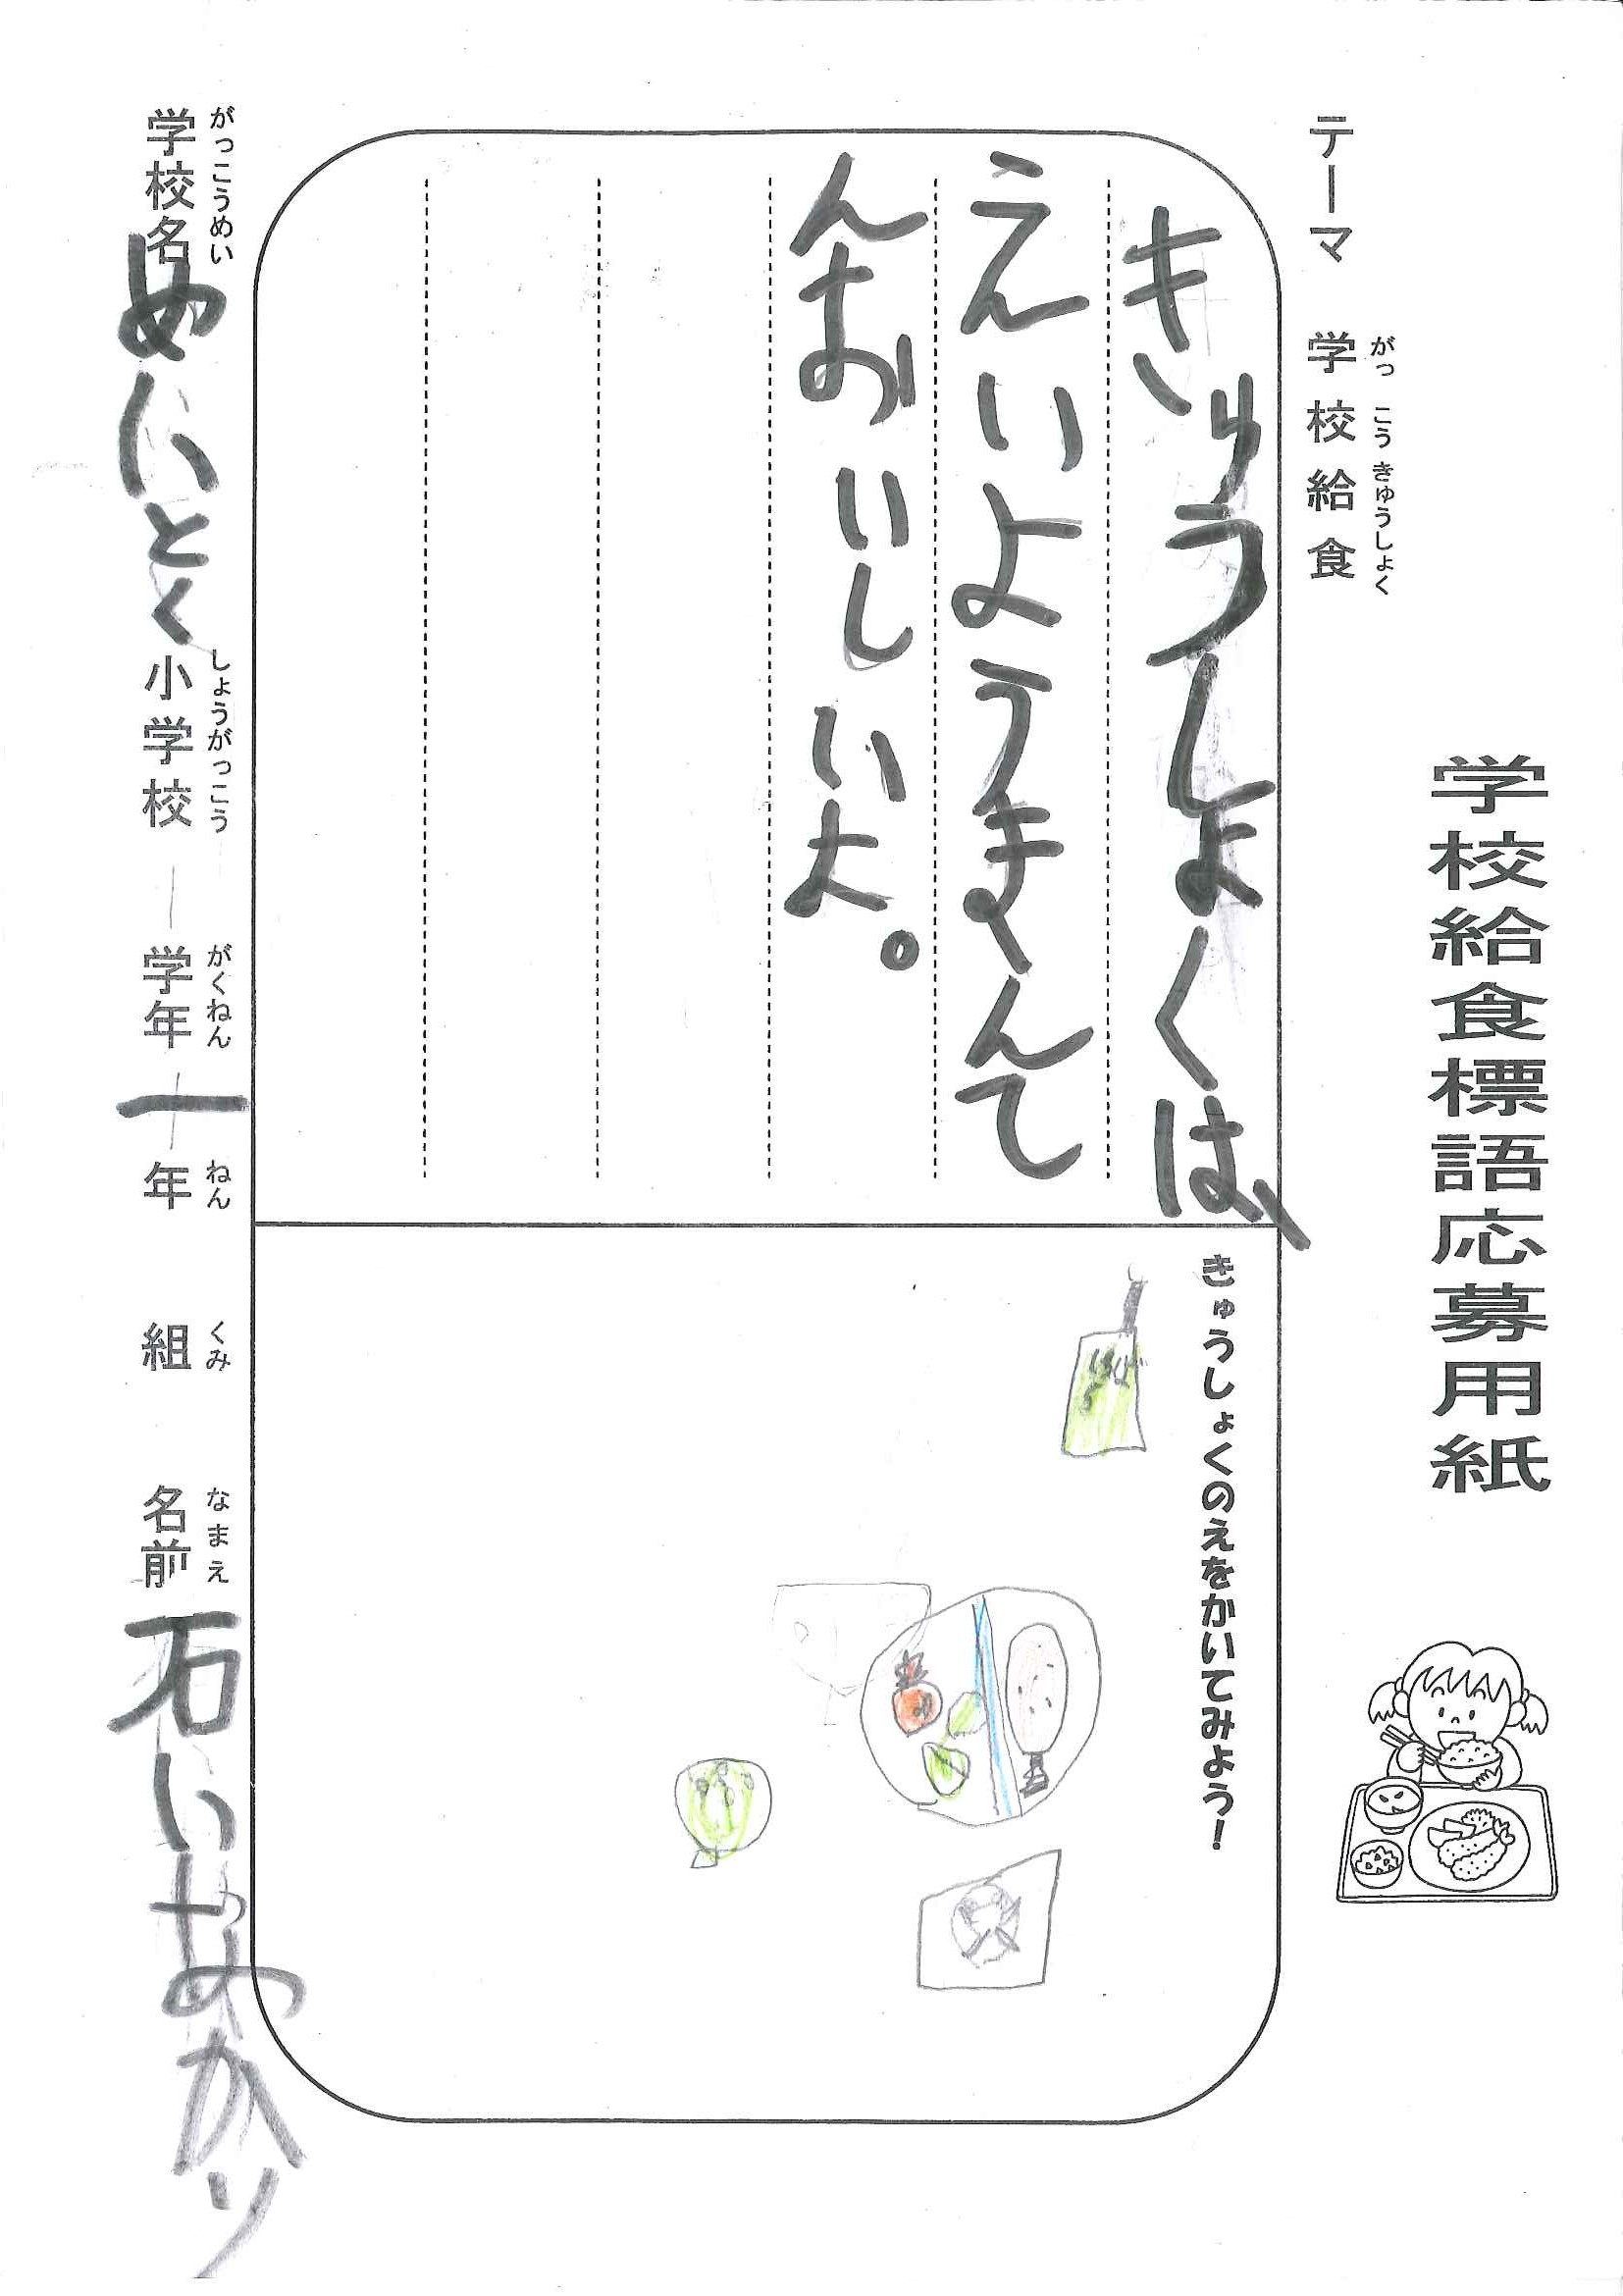 学校給食標語応募用紙
がっこうきゅうしょく
テーマ 学校給食
きゅうしょくは、
えいようまんて
んおいしいよ。
きゅうしょくのえをかいてみよう！
がっこうめい しょうがっこう がくねん ねん くみ なまえ
学校名 めいとく 小学校 学年 一 年 組 名前 石いあかり